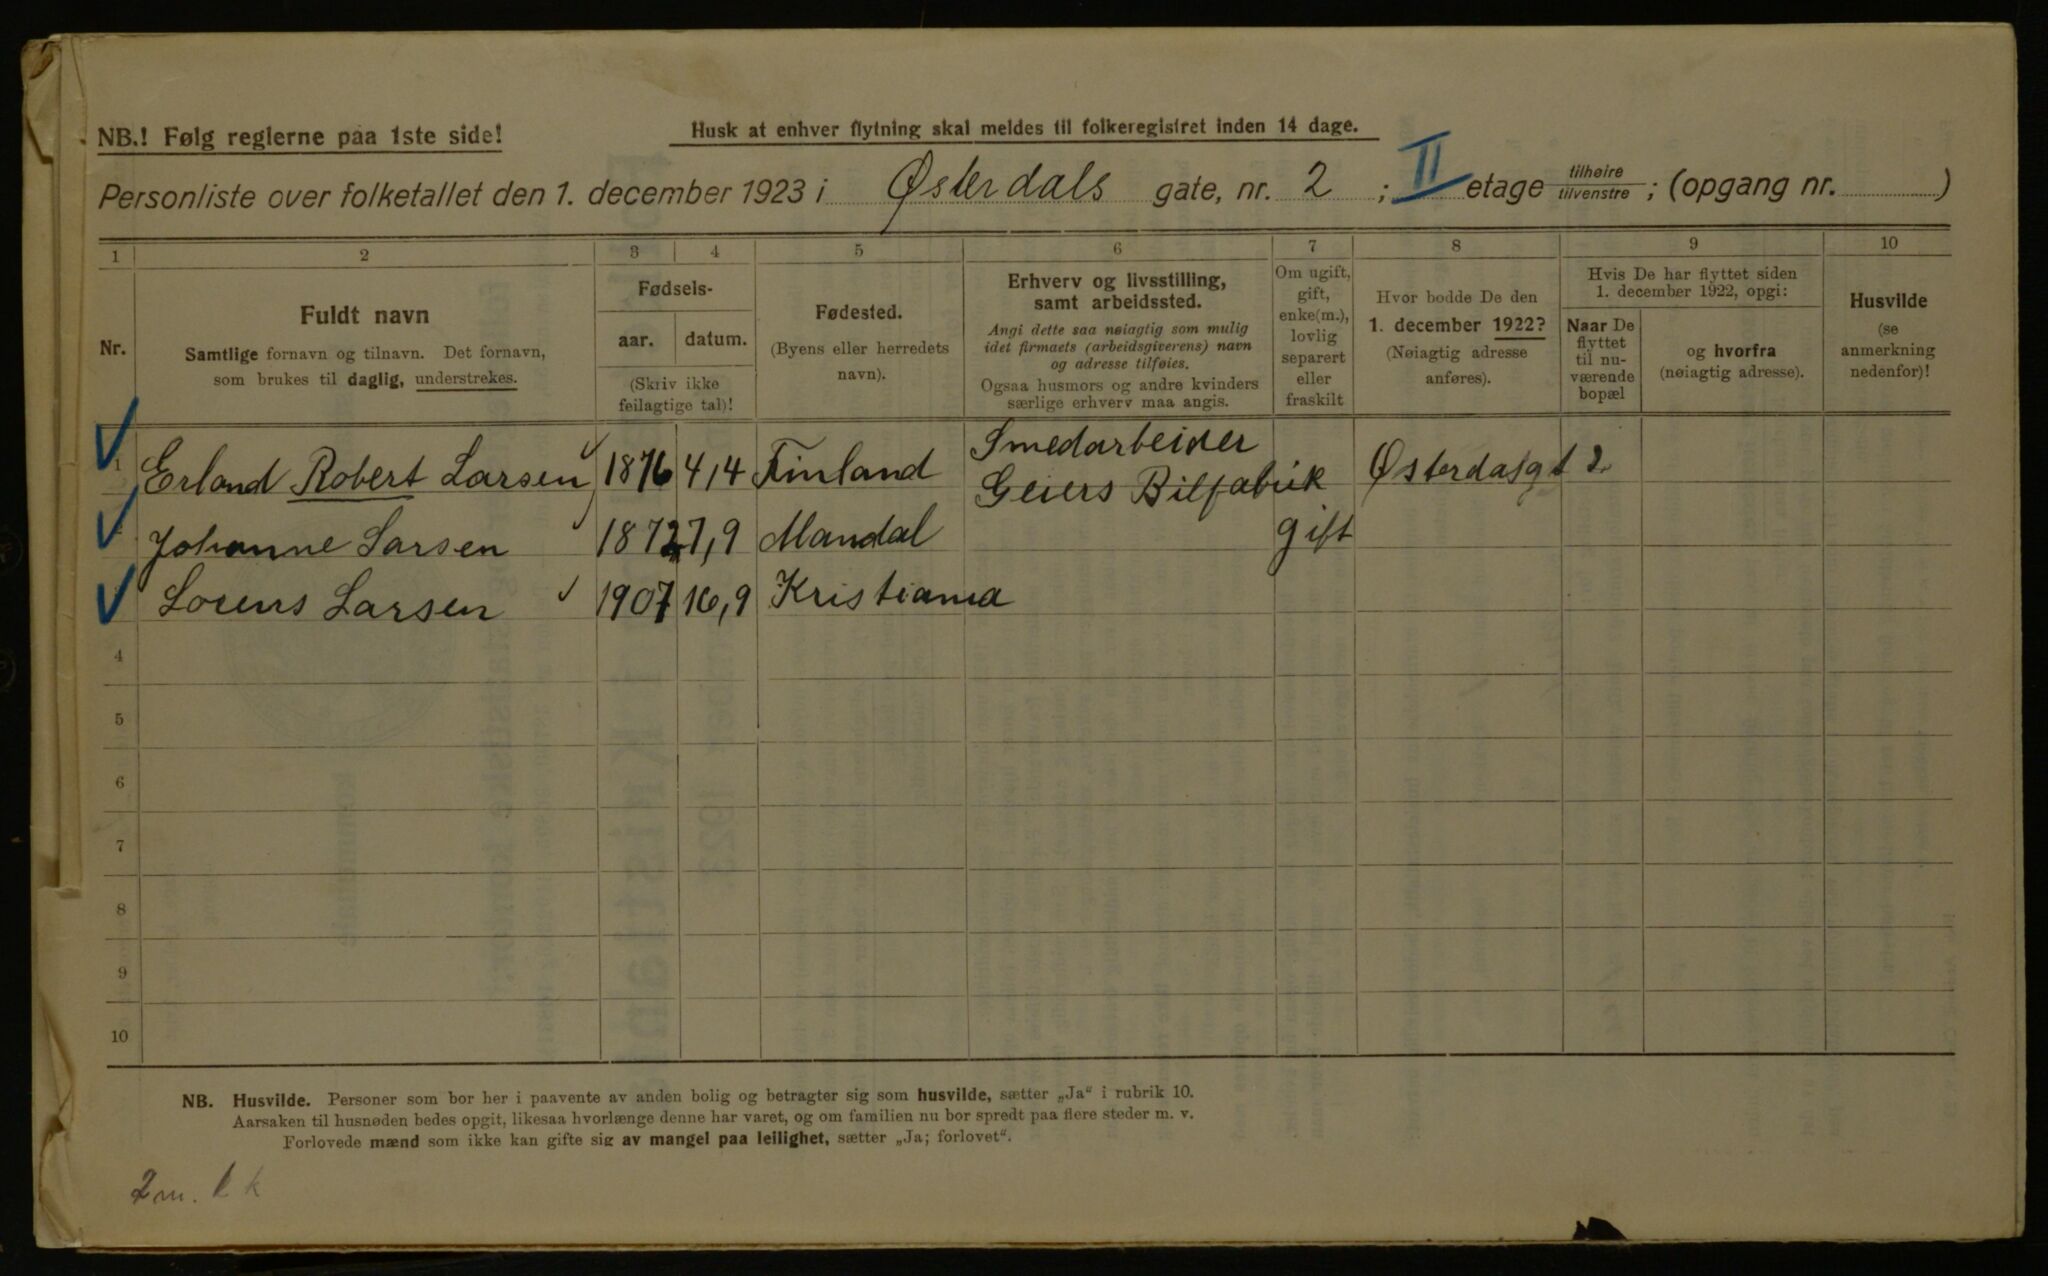 NB.! Følg reglerne paa 1ste side!
Husk at enhver flytning skal meldes til folkeregistret inden 14 dage.
Personliste over folketallet den 1. december 1923 i Østerdals gate, nr. 2 ; II etage tilhøire/tilvenstre ; (opgang nr. )
1 2 3 4 5 6 7 8 9 10
Nr.
Fuldt navn
Samtlige fornavn og tilnavn. Det fornavn,
som brukes til daglig, understrekes.
Fødsels-
aar. datum.
(Skriv ikke
feilagtige tal)!
Fødested.
(Byens eller herredets
navn).
Erhverv og livsstilling,
samt arbeidssted.
Angi dette saa nøiagtig som mulig
idet firmaets (arbeidsgiverens) navn
og adresse tilføies.
Ogsaa husmors og andre kvinders
særlige erhverv maa angis.
Om ugift,
gift,
enke(m.),
lovlig
separert
eller
fraskilt
Hvor bodde De den
1. december 1922?
(Nøiagtig adresse
anføres).
Hvis De har flyttet siden
1. december 1922, opgi:
Naar De
flyttet
til nu-
værende
bopæl
og hvorfra
(nøiagtig adresse).
Husvilde
(se
anmerkning
nedenfor)!
1 Erland Robert Larsen 1876 4/4 Finland Smedarbeider
Geiers Bilfabrik Østerdasgt 2
Johanne Larsen 1872 7,9 Mandal gift
Lorens Larsen 1907 16,9 Kristiania
4
5
6
7
8
9
10
NB. Husvilde. Personer som bor her i paavente av anden bolig og betragter sig som husvilde, sætter „Ja“ i rubrik 10.
Aarsaken til husnøden bedes opgit, likesaa hvorlænge denne har varet, og om familien nu bor spredt paa flere steder m. v.
Forlovede mænd som ikke kan gifte sig av mangel paa leilighet, sætter „Ja; forlovet“.
2 m. 1 k